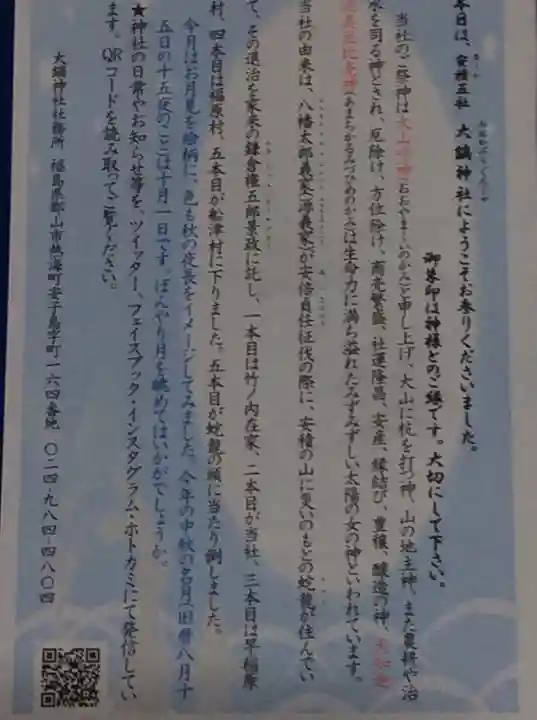 本日は、安積五社 大鏑神社にようこそお参りくださいました。
御朱印は神様とのご縁です。大切にして下さい。
当社のご祭神は大山祇神(おおやまつみのかみ)と申し上げ、大山に杭を打つ神、山の地主神、また農耕や治
水を司る神とされ、厄除け、方位除け、商売繁盛、社運隆昌、安産、縁結び、豊穣、醸造の神、
(あまちかるみづひめのかみ)は生命力に満ち溢れたみずみずしい太陽の女の神といわれています。
当社の由来は、八幡太郎義家(源義家)が安倍貞任征伐の際に、安積の山に災いのもとの蛇龍が住んでい
て、その退治を家来の鎌倉権五郎景政に託し、一本目は竹ノ内在家、二本目が当社、三本目は早稲原
村、四本目は福原村、五本目が舩津村に下りました。五本目が蛇龍の頭に当たり倒しました。
今月はお月見を絵柄に、色も秋の夜長をイメージしてみました。今年の中秋の名月(旧暦八月十
五日の十五夜のことは十月一日です。ぼんやり月を眺めてはいかがでしょうか。
★神社の日常やお知らせ等を、ツイッター、フェイスブック・インスタグラム・ホトカミにて発信してい
ます。QRコードを読み取ってご覧ください。
大鏑神社社務所 福島県郡山市熱海町安子島字町一六四番地 〇二四-九八四-四八〇四